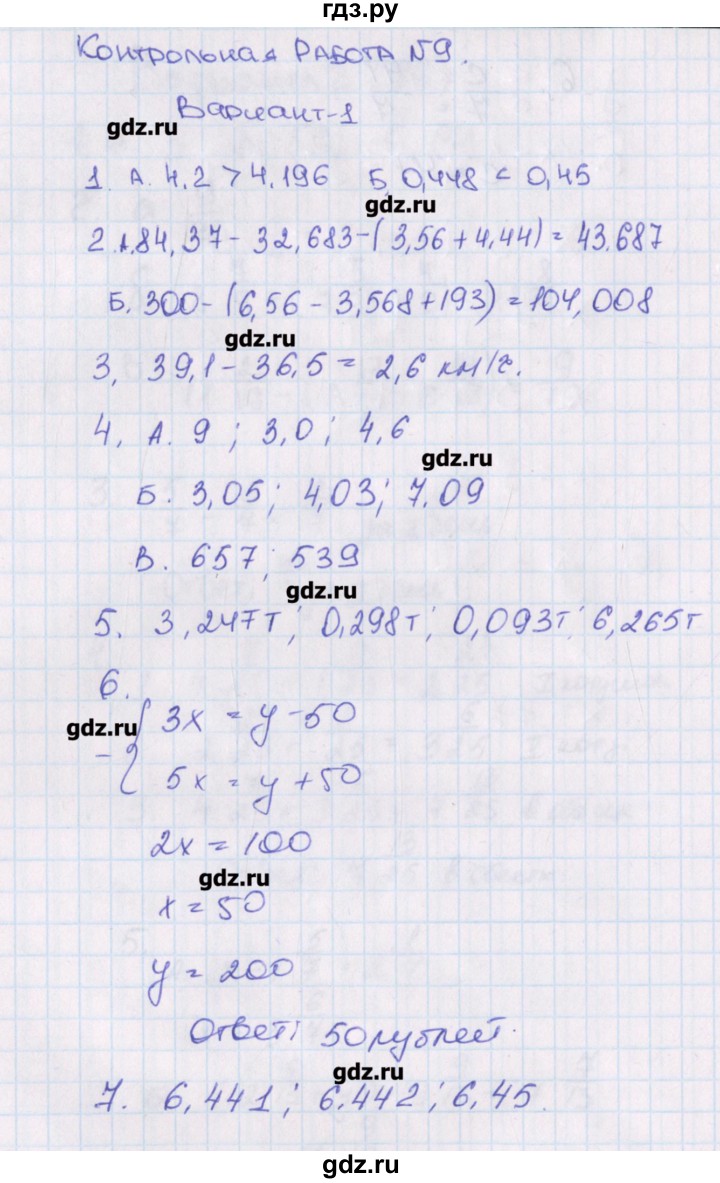 гдз.ру
Контрольная РАБОТА №9.
Вариант-1
gdz.ru
1. А. 4,2 > 4,196 Б. 0,448 < 0,45
gdz.ru
2. А. 84,37 - 32,683 - (3,56 + 4,44) = 43,687
Б. 300 - (6,56 - 3,568 + 193) = 104,008
gdz.ru
3, 39,1 - 36,5 = 2,6 км/ч.
4, А. 9 ; 3,0 ; 4,6
gdz.ru
Б. 3,05; 4,03; 7,09
В. 657; 539
gdz.ru
5. 3,247т; 0,298т; 0,093т; 6,265т
6.
gdz.ru
- { 3x = y - 50
5x = y + 50
2x = 100
gdz.ru
x = 50
y = 200
Ответ: 50 рублей.
gdz.ru
7. 6,441; 6,442; 6,45.
gdz.ru